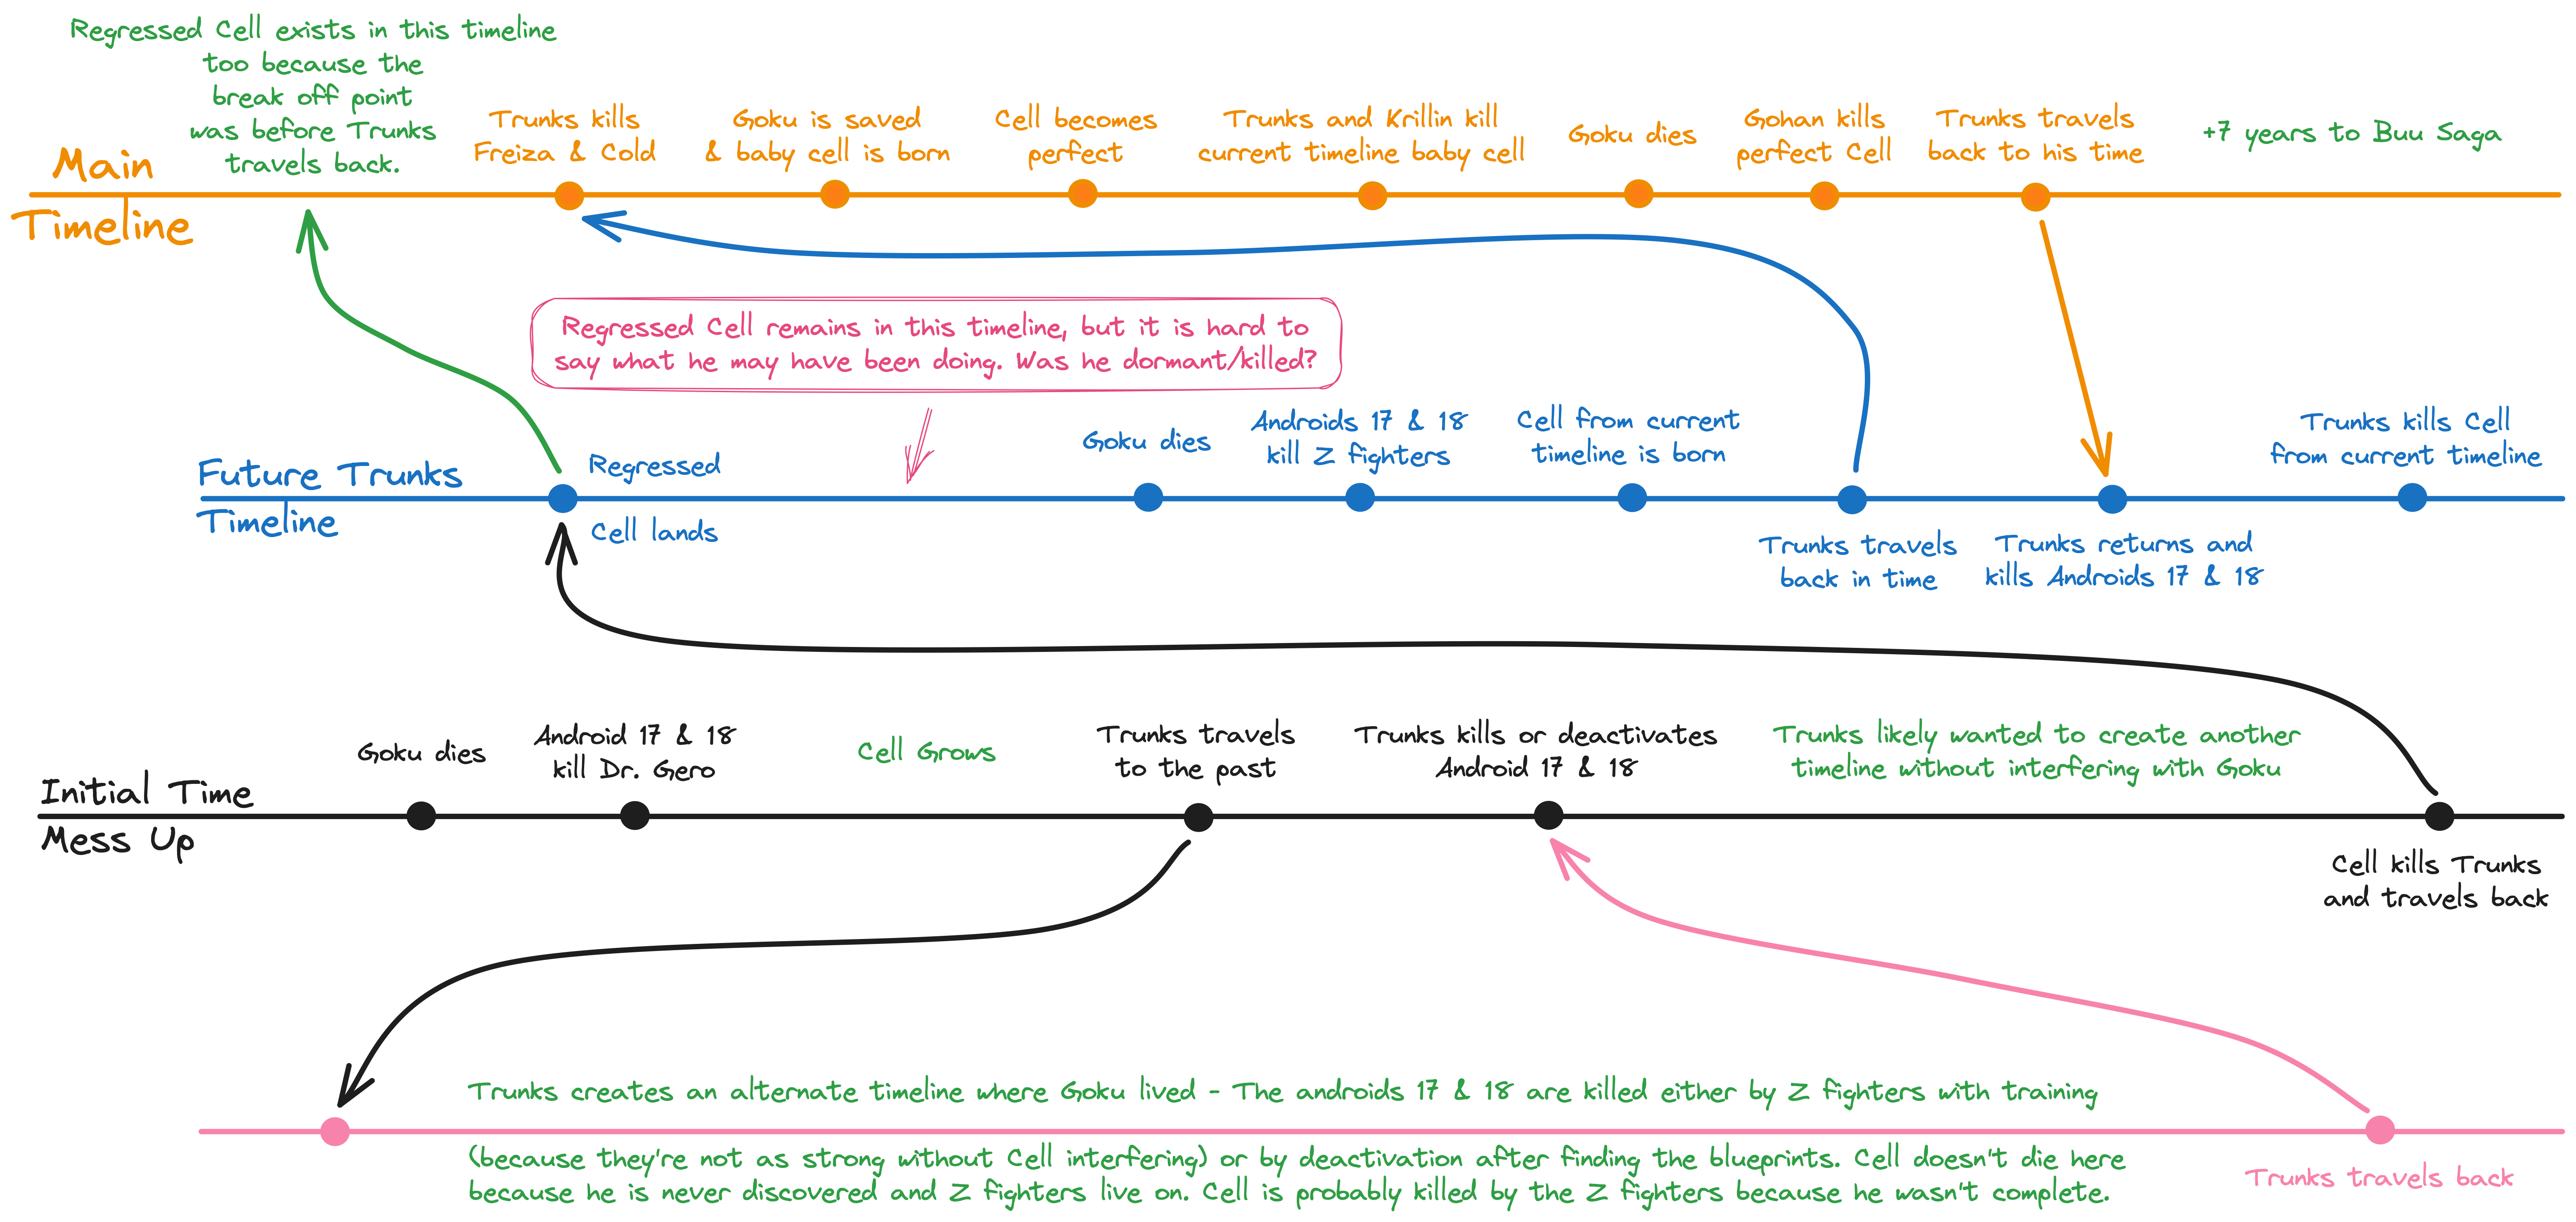 Regressed Cell exists in this timeline
too because the
break off point
was before Trunks
travels back.
Trunks kills
Freiza & Cold
Goku is saved
& baby cell is born
Cell becomes
perfect
Trunks and Krillin kill
current timeline baby cell
Goku dies
Gohan kills
perfect Cell
Trunks travels
back to his time
+7 years to Buu Saga
Main
Timeline
Regressed Cell remains in this timeline, but it is hard to
say what he may have been doing. Was he dormant/killed?
Future Trunks
Timeline
Regressed
Cell lands
Goku dies
Androids 17 & 18
kill Z fighters
Cell from current
timeline is born
Trunks travels
back in time
Trunks returns and
kills Androids 17 & 18
Trunks kills Cell
from current timeline
Initial Time
Mess Up
Goku dies
Android 17 & 18
kill Dr. Gero
Cell Grows
Trunks travels
to the past
Trunks kills or deactivates
Android 17 & 18
Trunks likely wanted to create another
timeline without interfering with Goku
Cell kills Trunks
and travels back
Trunks creates an alternate timeline where Goku lived - The androids 17 & 18 are killed either by Z fighters with training
(because they're not as strong without Cell interfering) or by deactivation after finding the blueprints. Cell doesn't die here
because he is never discovered and Z fighters live on. Cell is probably killed by the Z fighters because he wasn't complete.
Trunks travels back